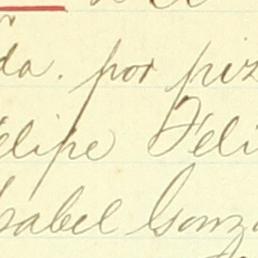 da. por piz
elipe Feli
sabel Gonza